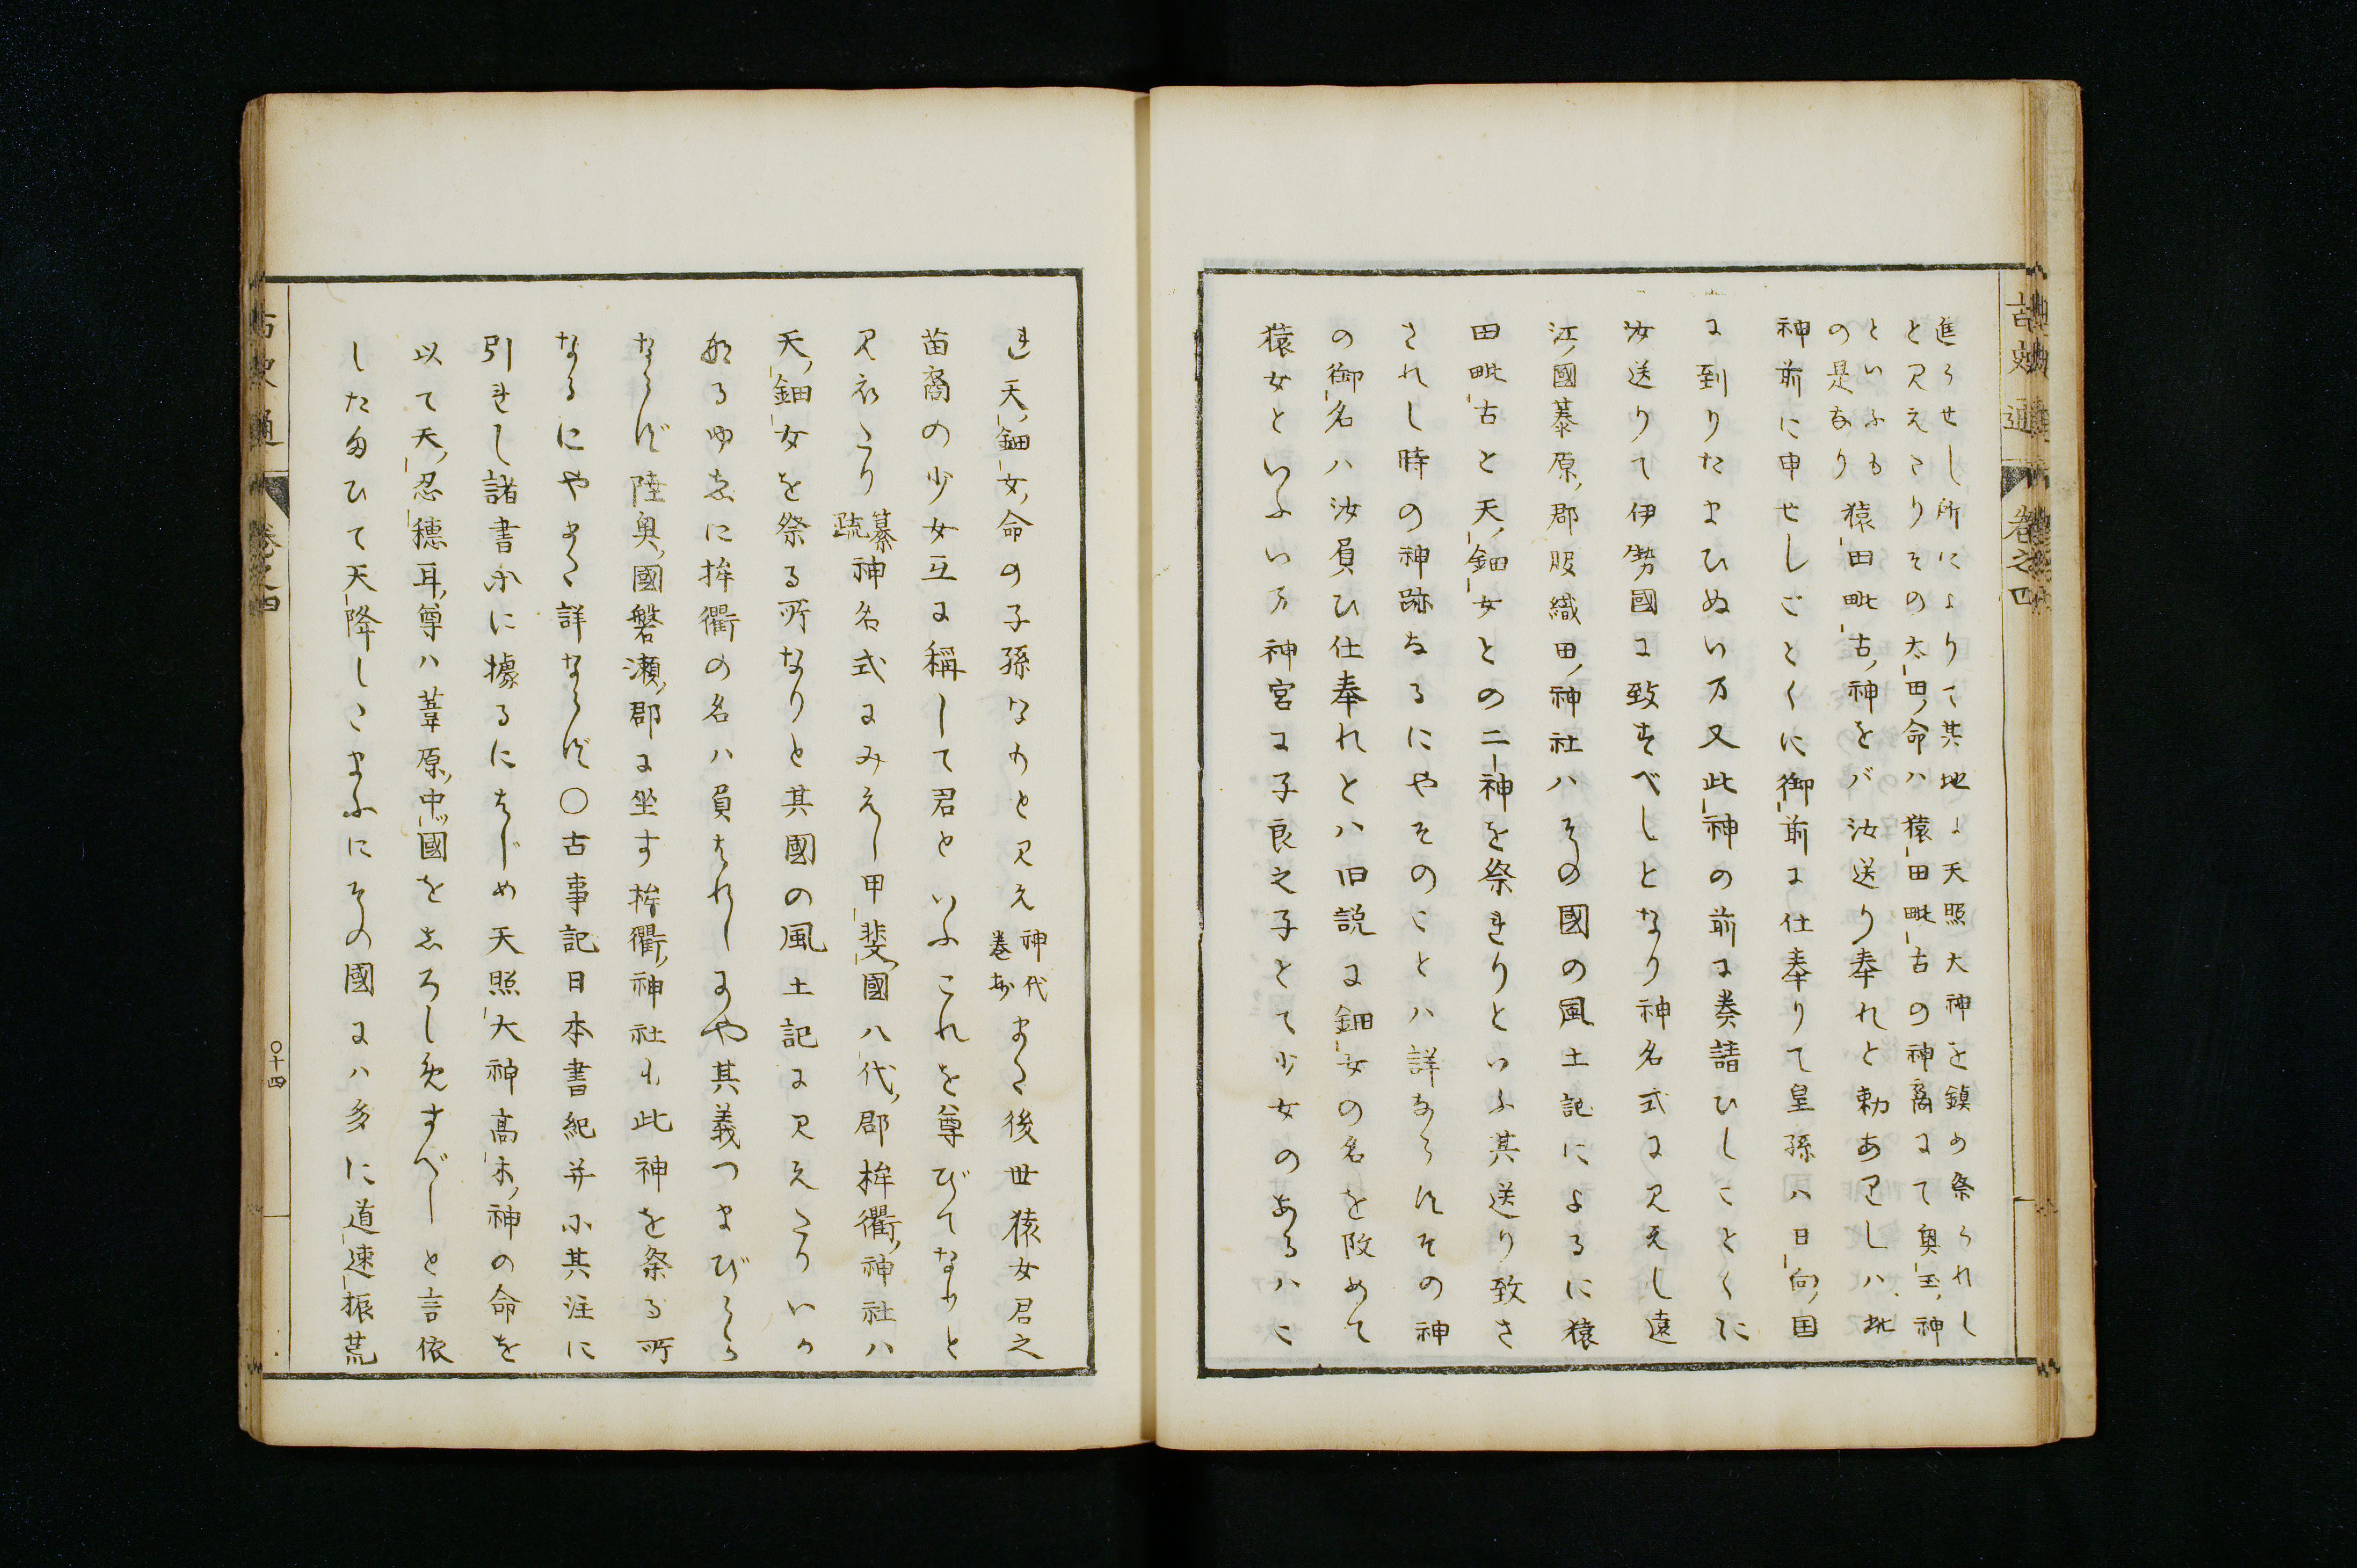 古史通 卷之四
進らせし所によりて其地に天照大神を鎮め祭られし
と見えたりその太田命ハ猿田毗古の神裔にて奥玉神
といふも
の是なり猿田毗古神をバ汝送り奉れと勅ありしハ此
神前に申せしごとくに御前に仕奉りて皇孫ハ日向国
に到りたまひぬいカ又此神の前に奏請ひしことくに
汝送りて伊勢國に致すべしとなり神名式に見えし遠
江國蓁原郡服織田神社ハその國の風土記によるに猿
田毗古と天鈿女との二神を祭れりといふ其送り致さ
されし時の神跡なるにやそのことハ詳ならすその神
の御名ハ汝負ひ仕奉れとハ旧説に鈿女の名を改めて
猿女といふいカ神宮に子良之子とて少女のあるハこ
れ天鈿女命の子孫なりと見え
神代
卷抄
また後世猿女君之
苗裔の少女互に稱して君といふこれを尊びてなりと
見えたり
纂
疏
神名式にみえし甲斐國八代郡桙衢神社ハ
天鈿女を祭る所なりと其國の風土記に見えたりいカ
なるゆゑに桙衢の名ハ負はれしにや其義つまびらか
ならず陸奥國磐瀬郡に坐す桙衢神社も此神を祭る所
なるにやまた詳ならず〇古事記日本書紀并小其注に
引れし諸書小に據るにはじめ天照大神高木神の命を
以て天忍穗耳尊ハ葦原中國をしろしめすべしと言依
したまひて天降したまふにその國にハ多に道速振荒
古史通 卷之四
〇十四